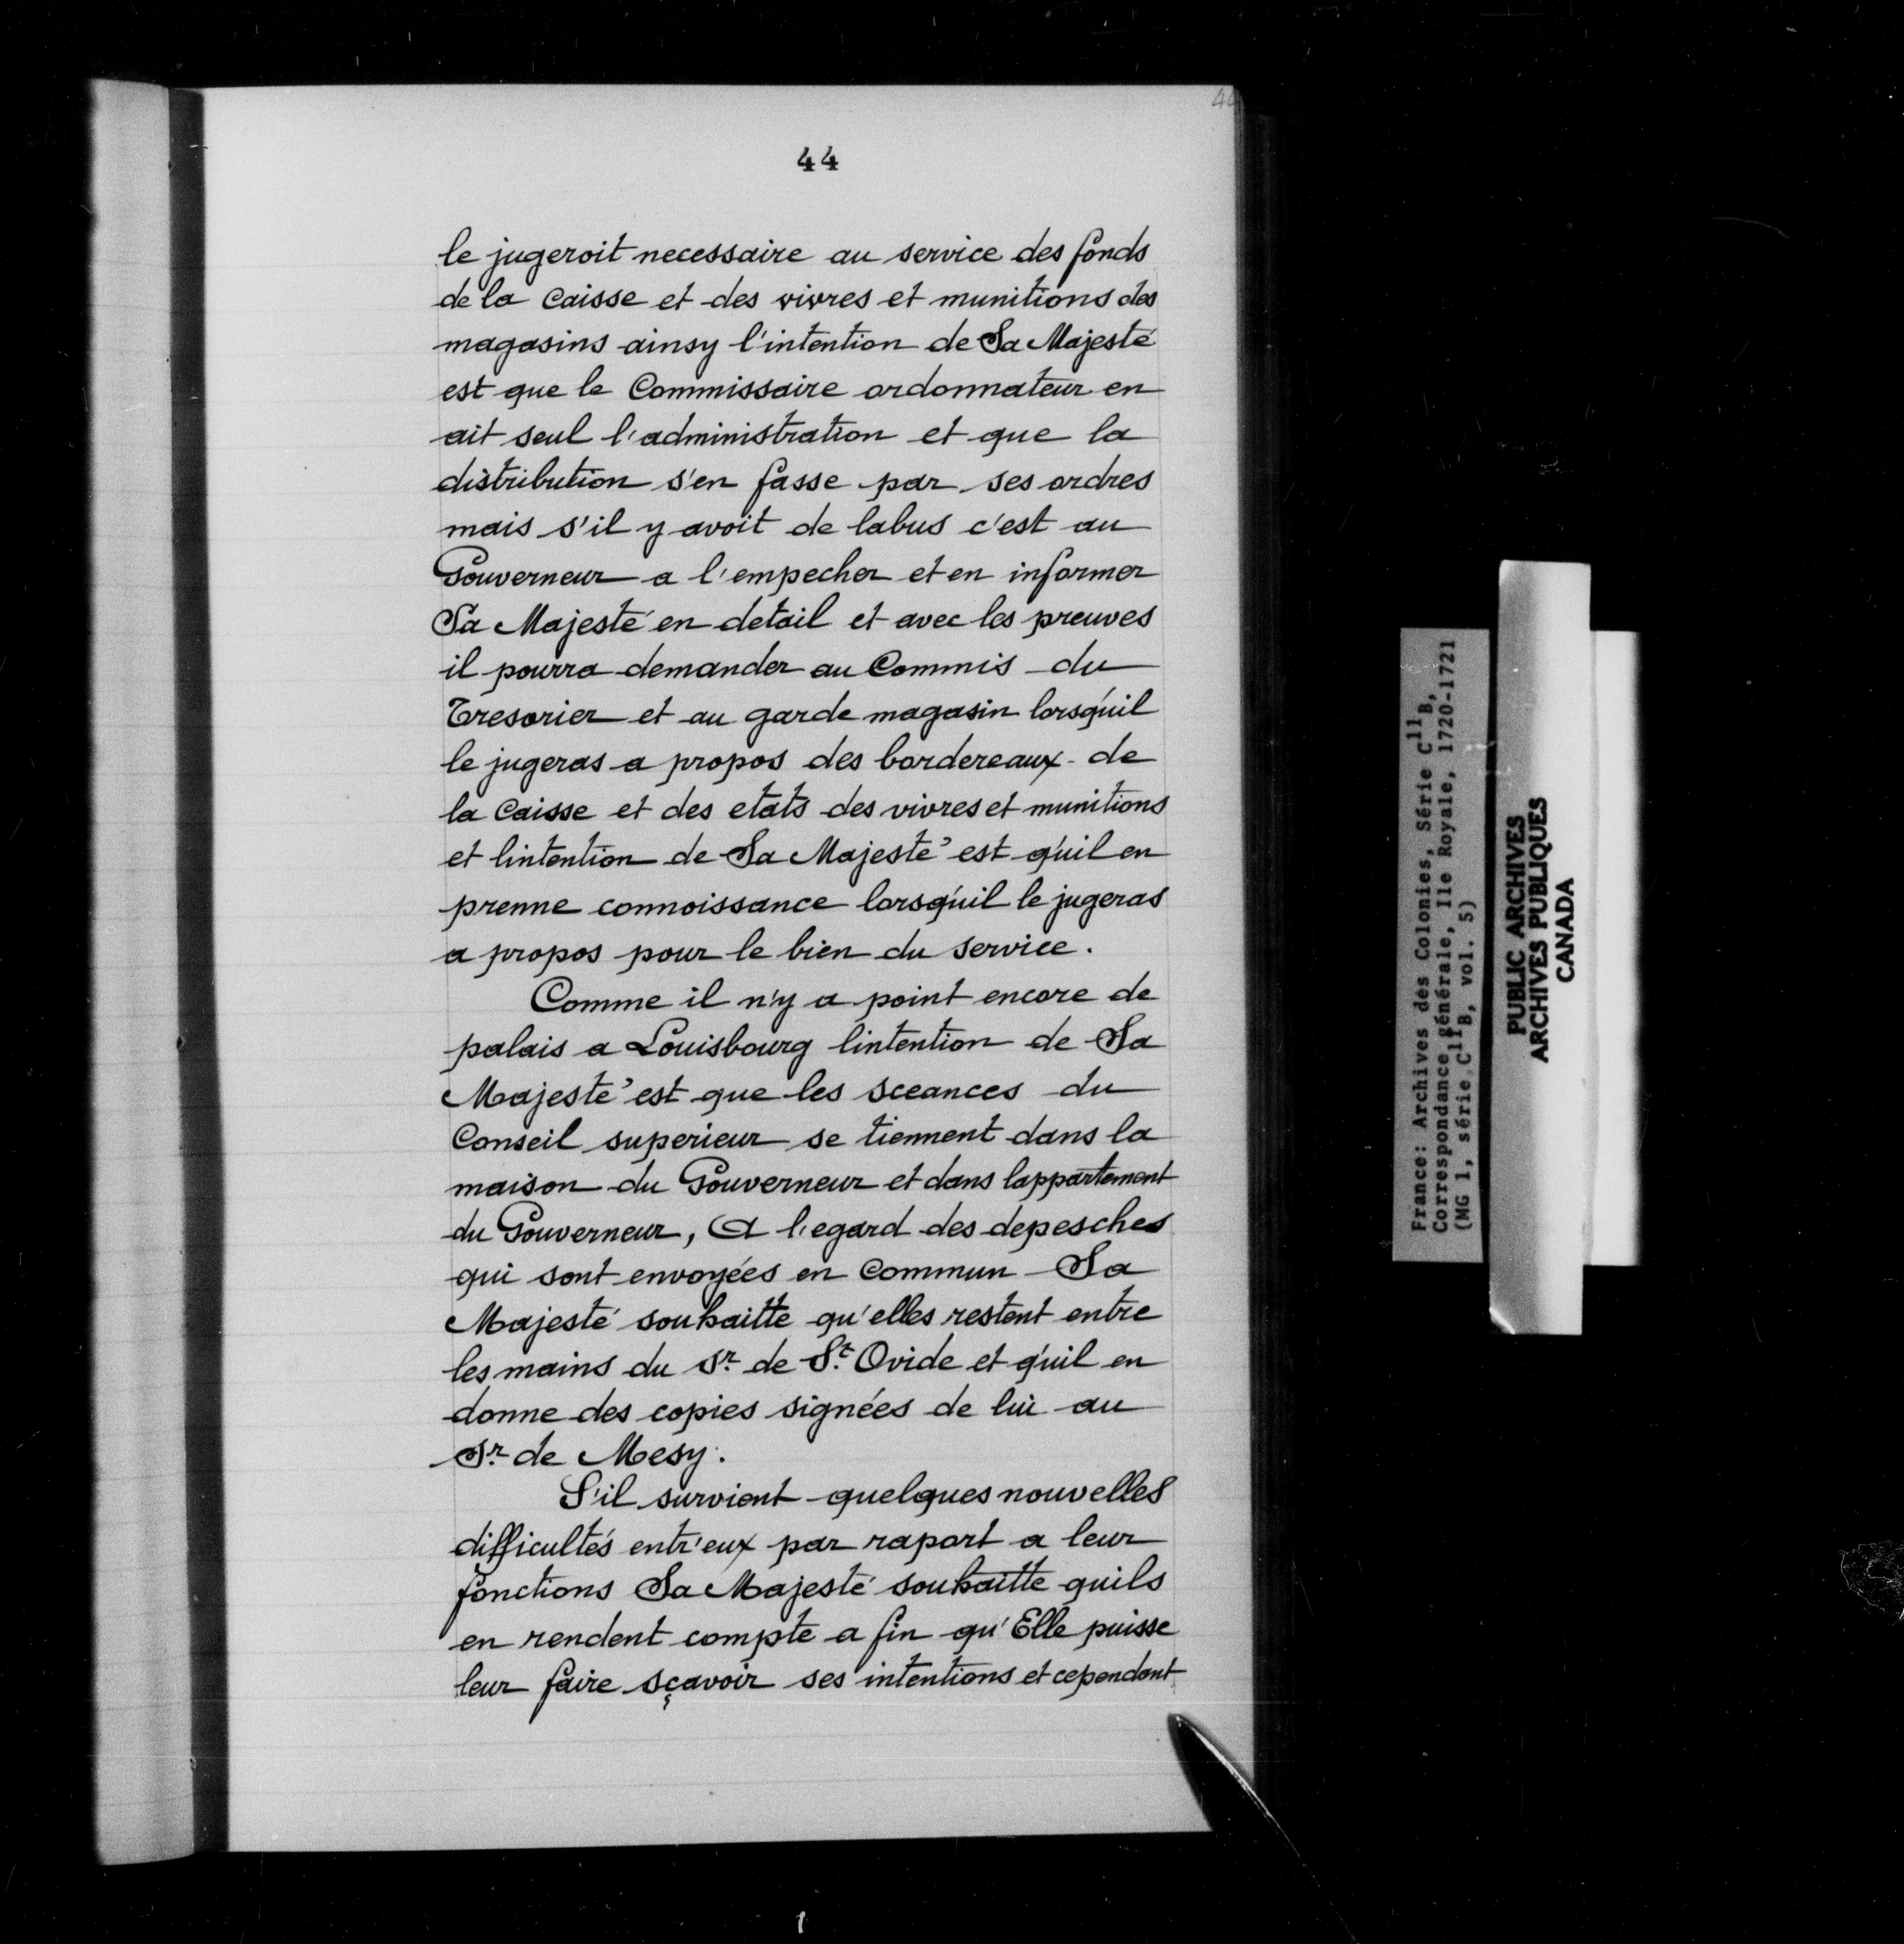 44
44
le jugeroit necessaire au service des fonds
de la Caisse et des vivres et munitions des
magasins ainsy l'intention de Sa Majesté
est que le Commissaire ordonnateur en
ait seul l'administration et que la
distribution s'en fasse par ses ordres
mais s'il y avoit de labus c'est au
Gouverneur a l'empecher et en informer
Sa Majesté en detail et avec les preuves
il pourra demander au Commis du
Tresorier et au garde magasin lorsqu'il
le jugeras a propos des bordereaux de
la Caisse et des etats des vivres et munitions
et lintention de Sa Majesté est qu'il en
prenne connoissance lorsqu'il le jugeras
a propos pour le bien du service.
Comme il n'y a point encore de
palais a Louisbourg lintention de Sa
Majesté est que les sceances du
Conseil superieur se tiennent dans la
maison du Gouverneur et dans lappartement
du Gouverneur, A l'egard des depesches
qui sont envoyées en Commun Sa
Majesté souhaitte qu'elles restent entre
les mains du Sr. de St. Ovide et qu'il en
donne des copies signées de lui au
Sr. de Mesy.
S'il survient quelques nouvelles
difficultés entr'eux par raport a leur
fonctions Sa Majesté souhaitte quils
en rendent compte a fin qu'Elle puisse
leur faire sçavoir ses intentions et cependant
France: Archives des Colonies, Série C11B,
Correspondance générale, Ile Royale, 1720-1721
(MG 1, série C11B, vol. 5)
PUBLIC ARCHIVES
ARCHIVES PUBLIQUES
CANADA